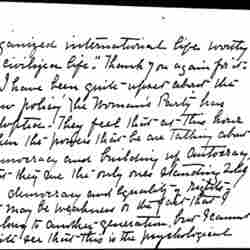 ganized international life worthy
civilized life." Thank you again for it.
I have been quite upset about the
w policy the Woman's Party has
adopted. They feel that at this hour
when the powers that be are talking about
democracy and building up autocracy
that they are the only ones standing
democracy and equality
t may be weakness or the fact that I
long to another generation, but I cannot
see that this is the psychological